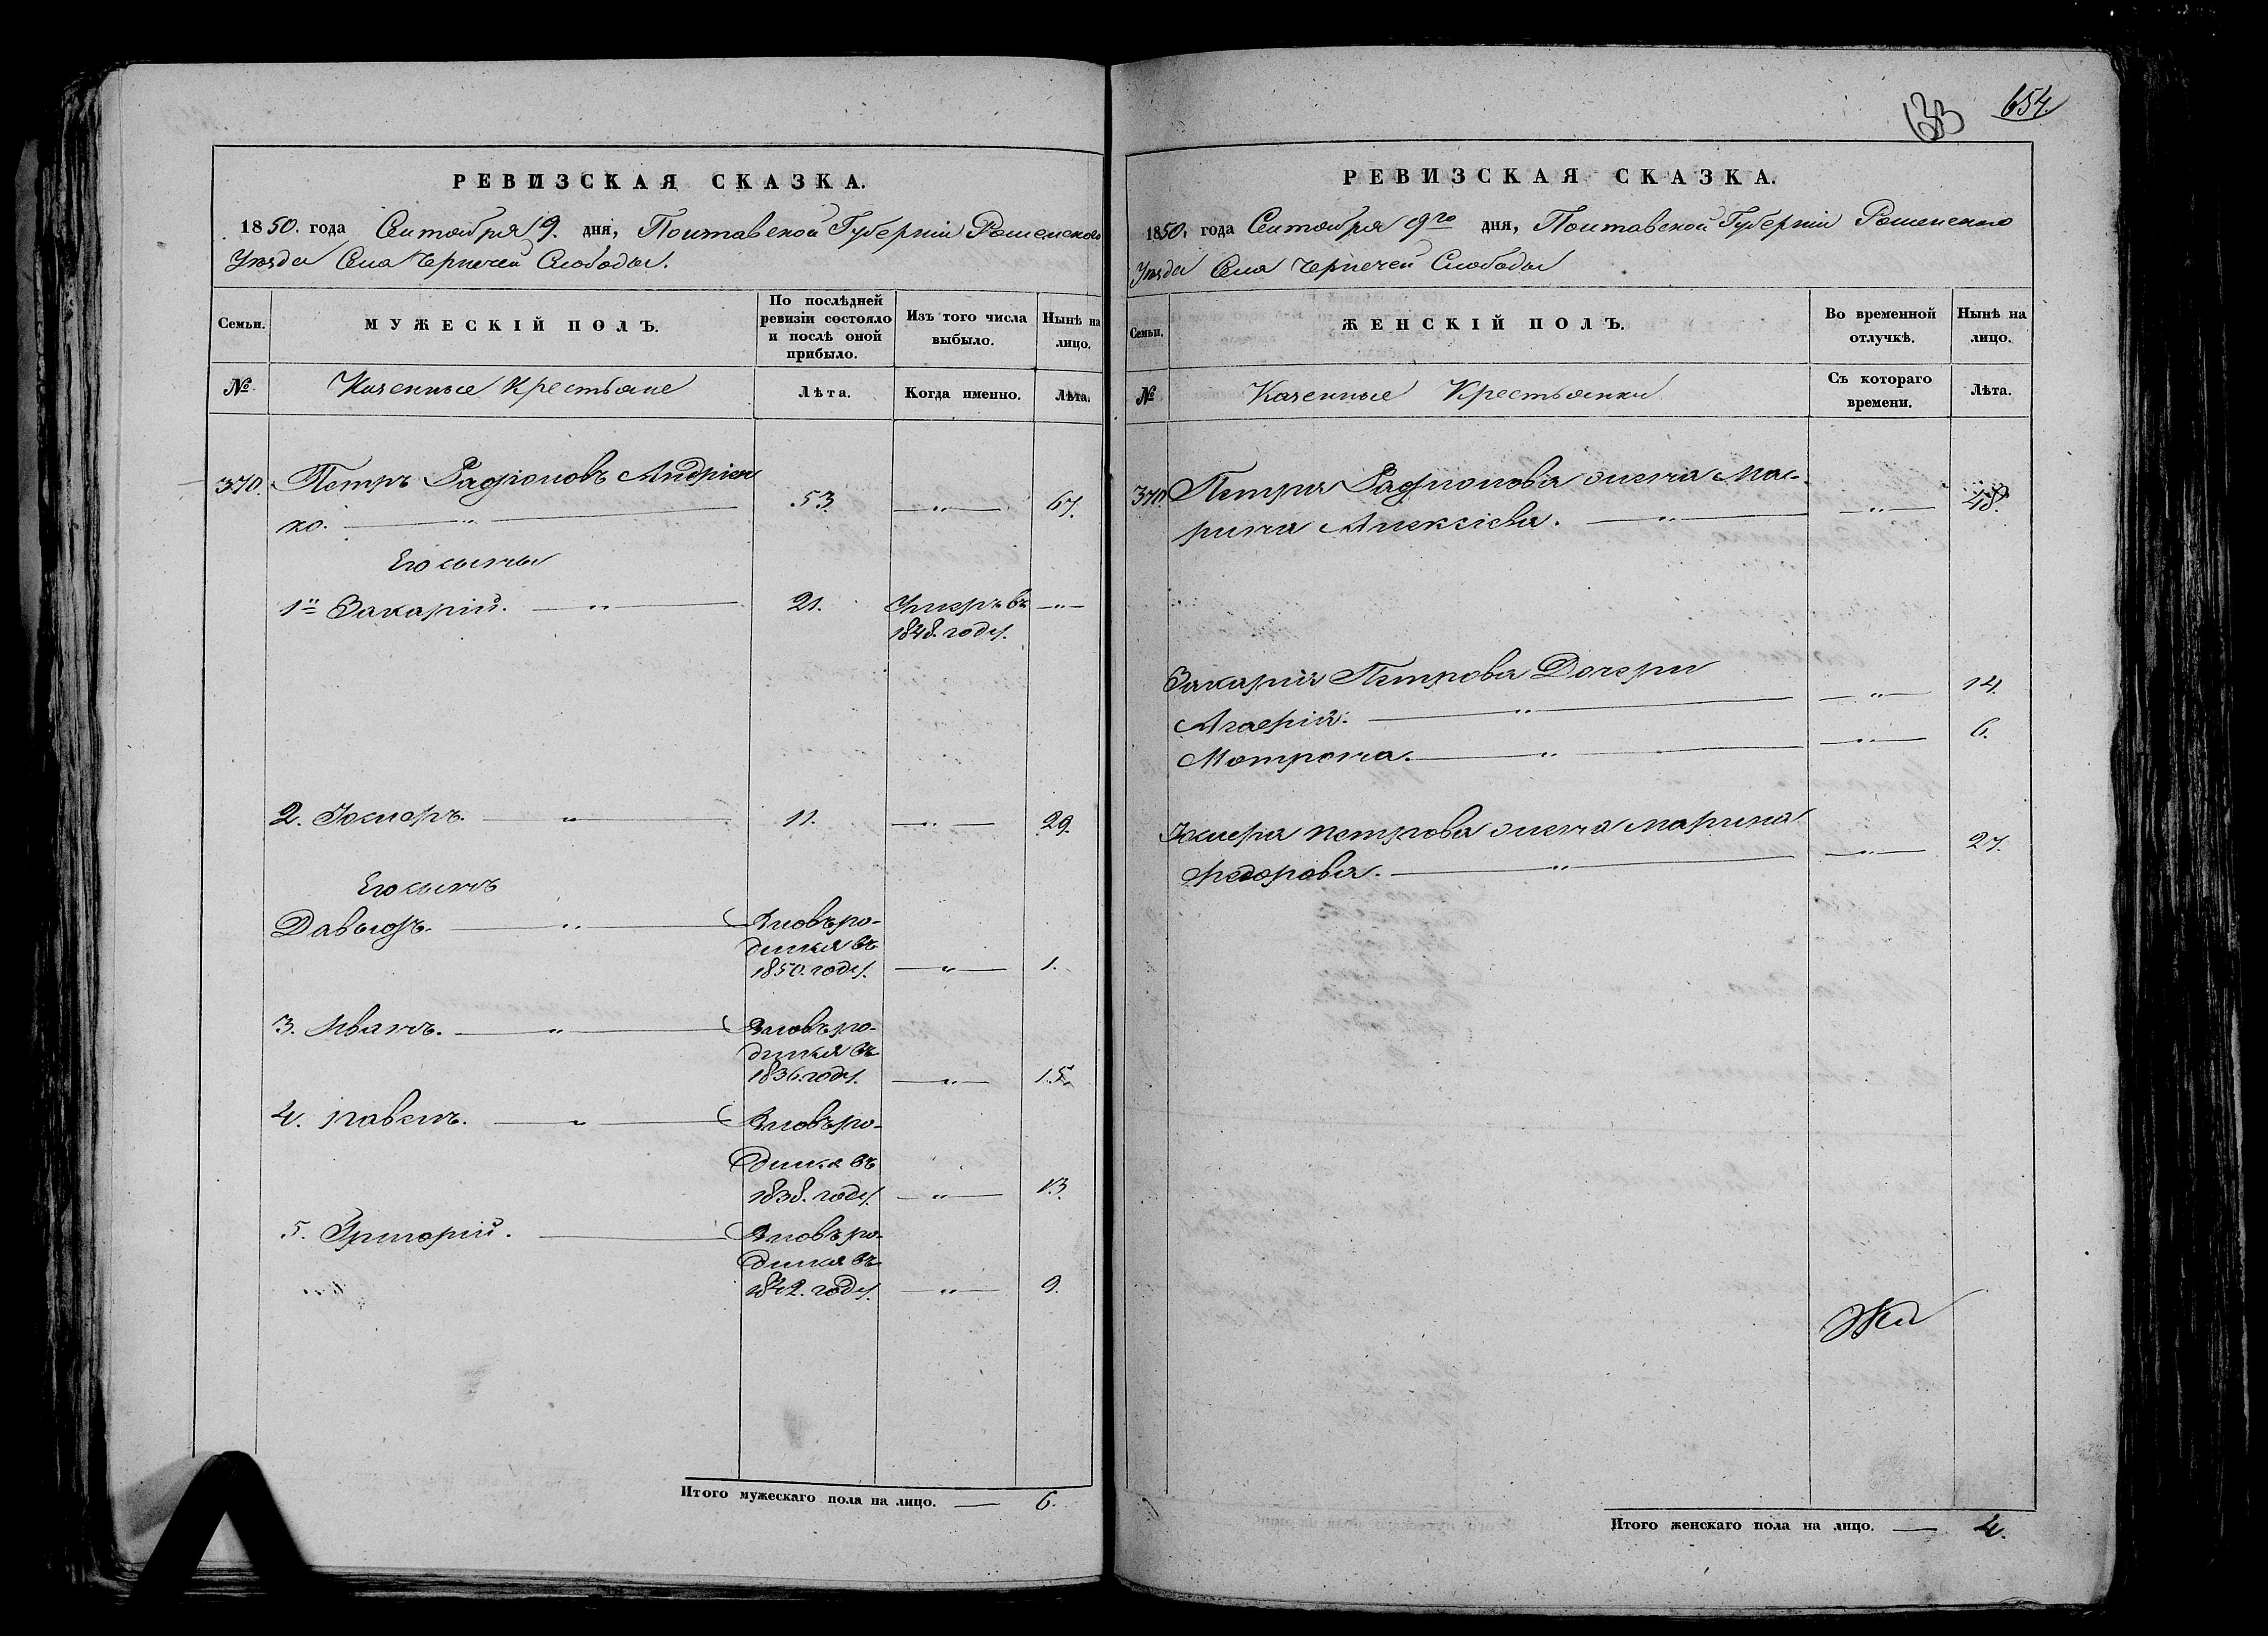 РЕВИЗСКАЯ СКАЗКА.
1850. года Сентября 9. дня, Полтавской Губерніи Роменского
Уѣзда Села Чернечей Слободы.
Семьи.
МУЖЕСКІЙ ПОЛЪ.
По послѣдней ревизіи состояло и послѣ оной прибыло.
Изъ того числа выбыло.
Нынѣ на лицо.
№
Казенные Крестьяне
Лѣта.
Когда именно.
Лѣта.
370. Петръ Радіоновъ Андріен
ко. — " — 53. — " — 67.
Его сыны
1й Захарій. — " — 21. Умеръ въ — " —
1848. году.
2. — " — 11. — " — 29.
Его сынъ
Давыдъ. — " — Вновь ро-
дился въ
1850. году. — " — 1.
3. Иванъ. — " — Вновь ро-
дился въ
1836. году. — " — 15.
4. Павелъ. — " — Вновь ро-
дился въ
1838. году. — " — 13.
5. Григорій. — Вновь ро-
дился въ
1842. году. — " — 9.
Итого мужескаго пола на лицо. — 6.
654.
РЕВИЗСКАЯ СКАЗКА.
1850. года Сентября 9го дня, Полтавской Губерніи Роменского
Уѣзда Села Чернечей Слободы
Семьи.
ЖЕНСКІЙ ПОЛЪ.
Во временной отлучкѣ.
Нынѣ на лицо.
№
Казенные Крестьянки
Съ котораго времени.
Лѣта.
370. Петра Радіонова жена Ма-
рина Алексіева. — " — — " — 48.
Захарія Петрова Дочери
Агафія. — " — — " — 14.
Мотрона. — " — — " — 6.
Петрова жена Марина
Федорова. — " — — " — 27.
Итого женскаго пола на лицо. — 4.